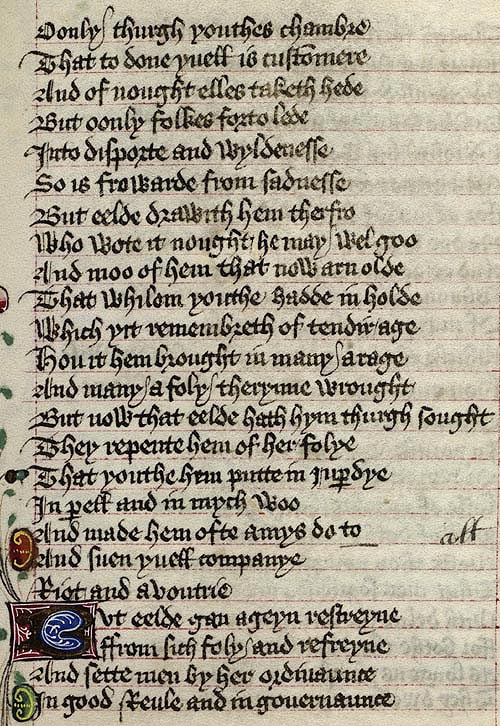 Oonly thurgh youthes chambre
That to done yuell is customere
And of nought elles taketh hede
But oonly folkes forto lede
Into disporte and wyldenesse
So is frowarde from sadnesse
But eelde drawith hem therfro
Who wote it nought he may wel goo
And moo of hem that now arn olde
That whilom youthe hadde in holde
Which yit remembreth of tendir age
Hou it hem brought in many a rage
And many a foly therynne wrought
But now that eelde hath hym thurgh sought
They repente hem of her folye
That youthe hem putte in Iuꝑdye
In ꝑell and in mych woo
And made hem ofte amys do to
alt
And suen yuell companye
Riot and avoutrie
Bvt eelde gan ageyn restreyne
ffrom sich foly and refreyne
And sette men by her ordinaunce
In good Reule and in governaunce